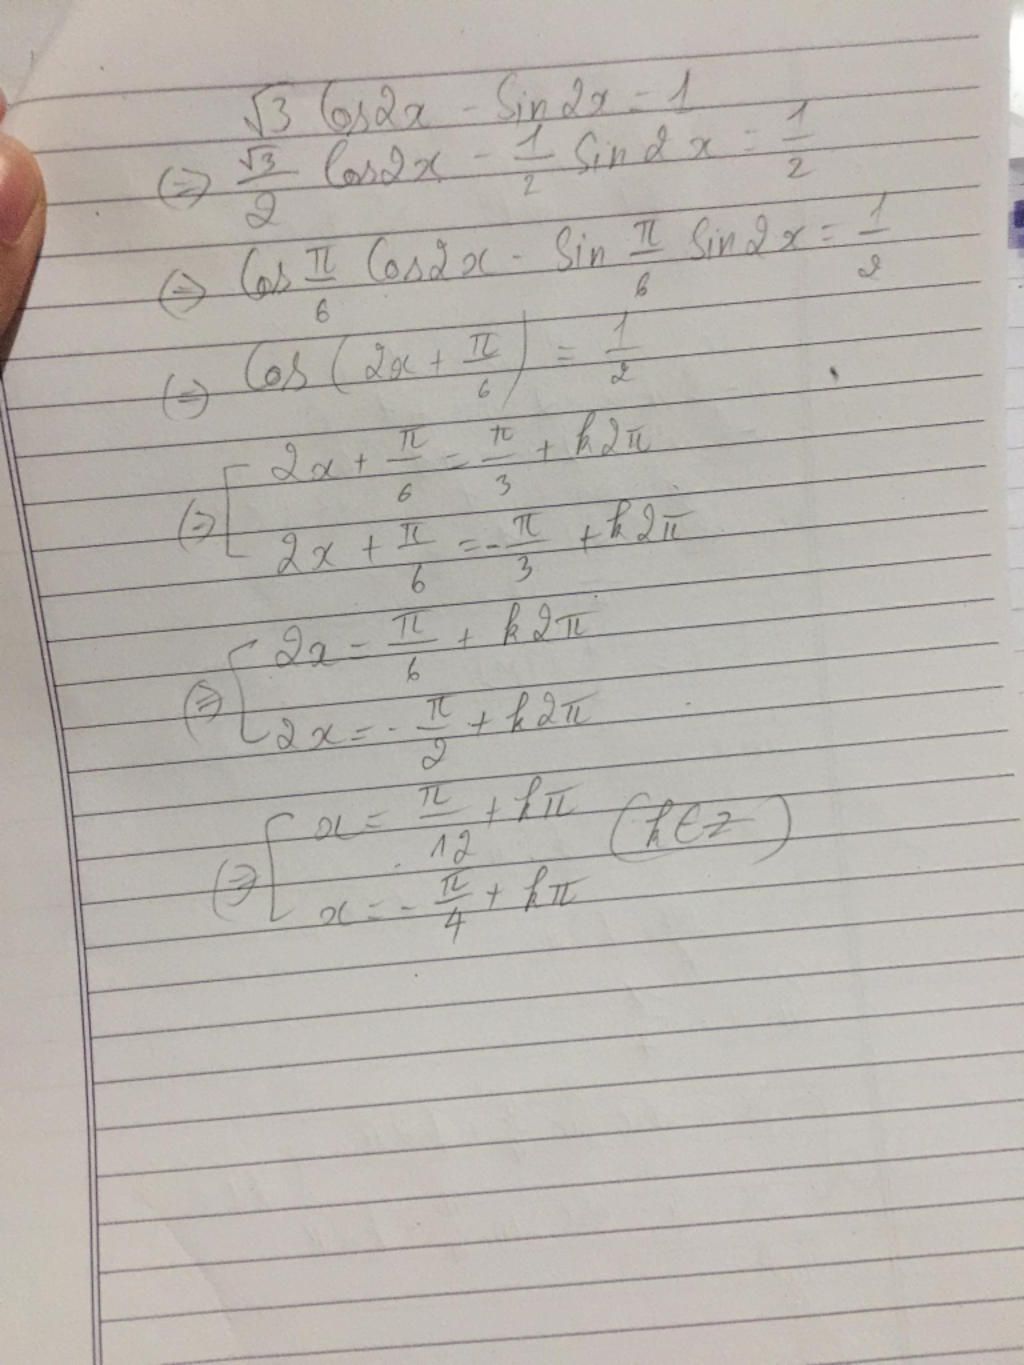 √3 Cos2x - Sin2x = 1
(=) √3/2 Cos2x - 1/2 Sin2x = 1/2
(=) Cos π/6 Cos2x - Sin π/6 Sin2x = 1/2
(=) Cos (2x + π/6) = 1/2
(=) [ 2x + π/6 = π/3 + k2π
2x + π/6 = -π/3 + k2π
(=) [ 2x = π/6 + k2π
2x = -π/2 + k2π
(=) [ x = π/12 + kπ (k∈z)
x = -π/4 + kπ